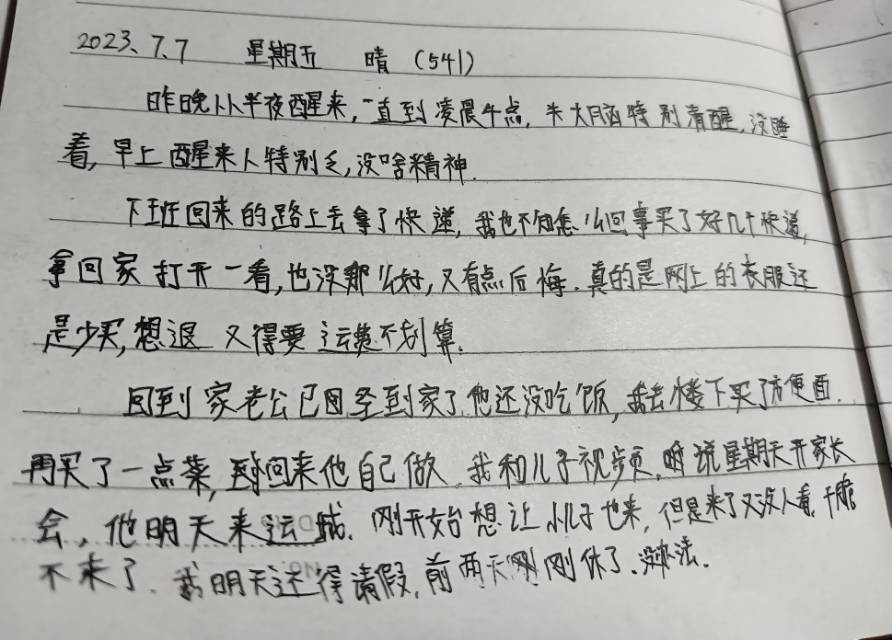 2023.7.7 星期五 晴(541)
昨晚从半夜醒来,一直到凌晨4点,大脑特别清醒,没睡
着,早上醒来人特别乏,没啥精神.
下班回来的路上去拿了快递,我也不知怎么回事买了好几个快递,
拿回家打开一看,也没那么好,又有点后悔.真的是网上的衣服还
是少买,想退又得要运费不划算.
回到家老公已经到家了,他还没吃饭,我去楼下买了方便面.
再买了一点菜,回来他自己做.我和儿子视频,说星期天开家长
会,他明天来运城.刚开始想让小儿子也来,但是来了又没人看,干脆
不来了.我明天还得请假,前两天刚休了.没办法.